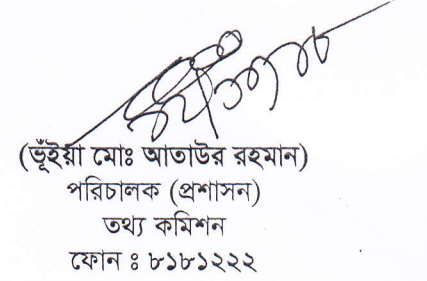 (ভূঁইয়া মোঃ আতাউর রহমান)
পরিচালক (প্রশাসন)
তথ্য কমিশন
ফোন ঃ ৮১৮১২২২